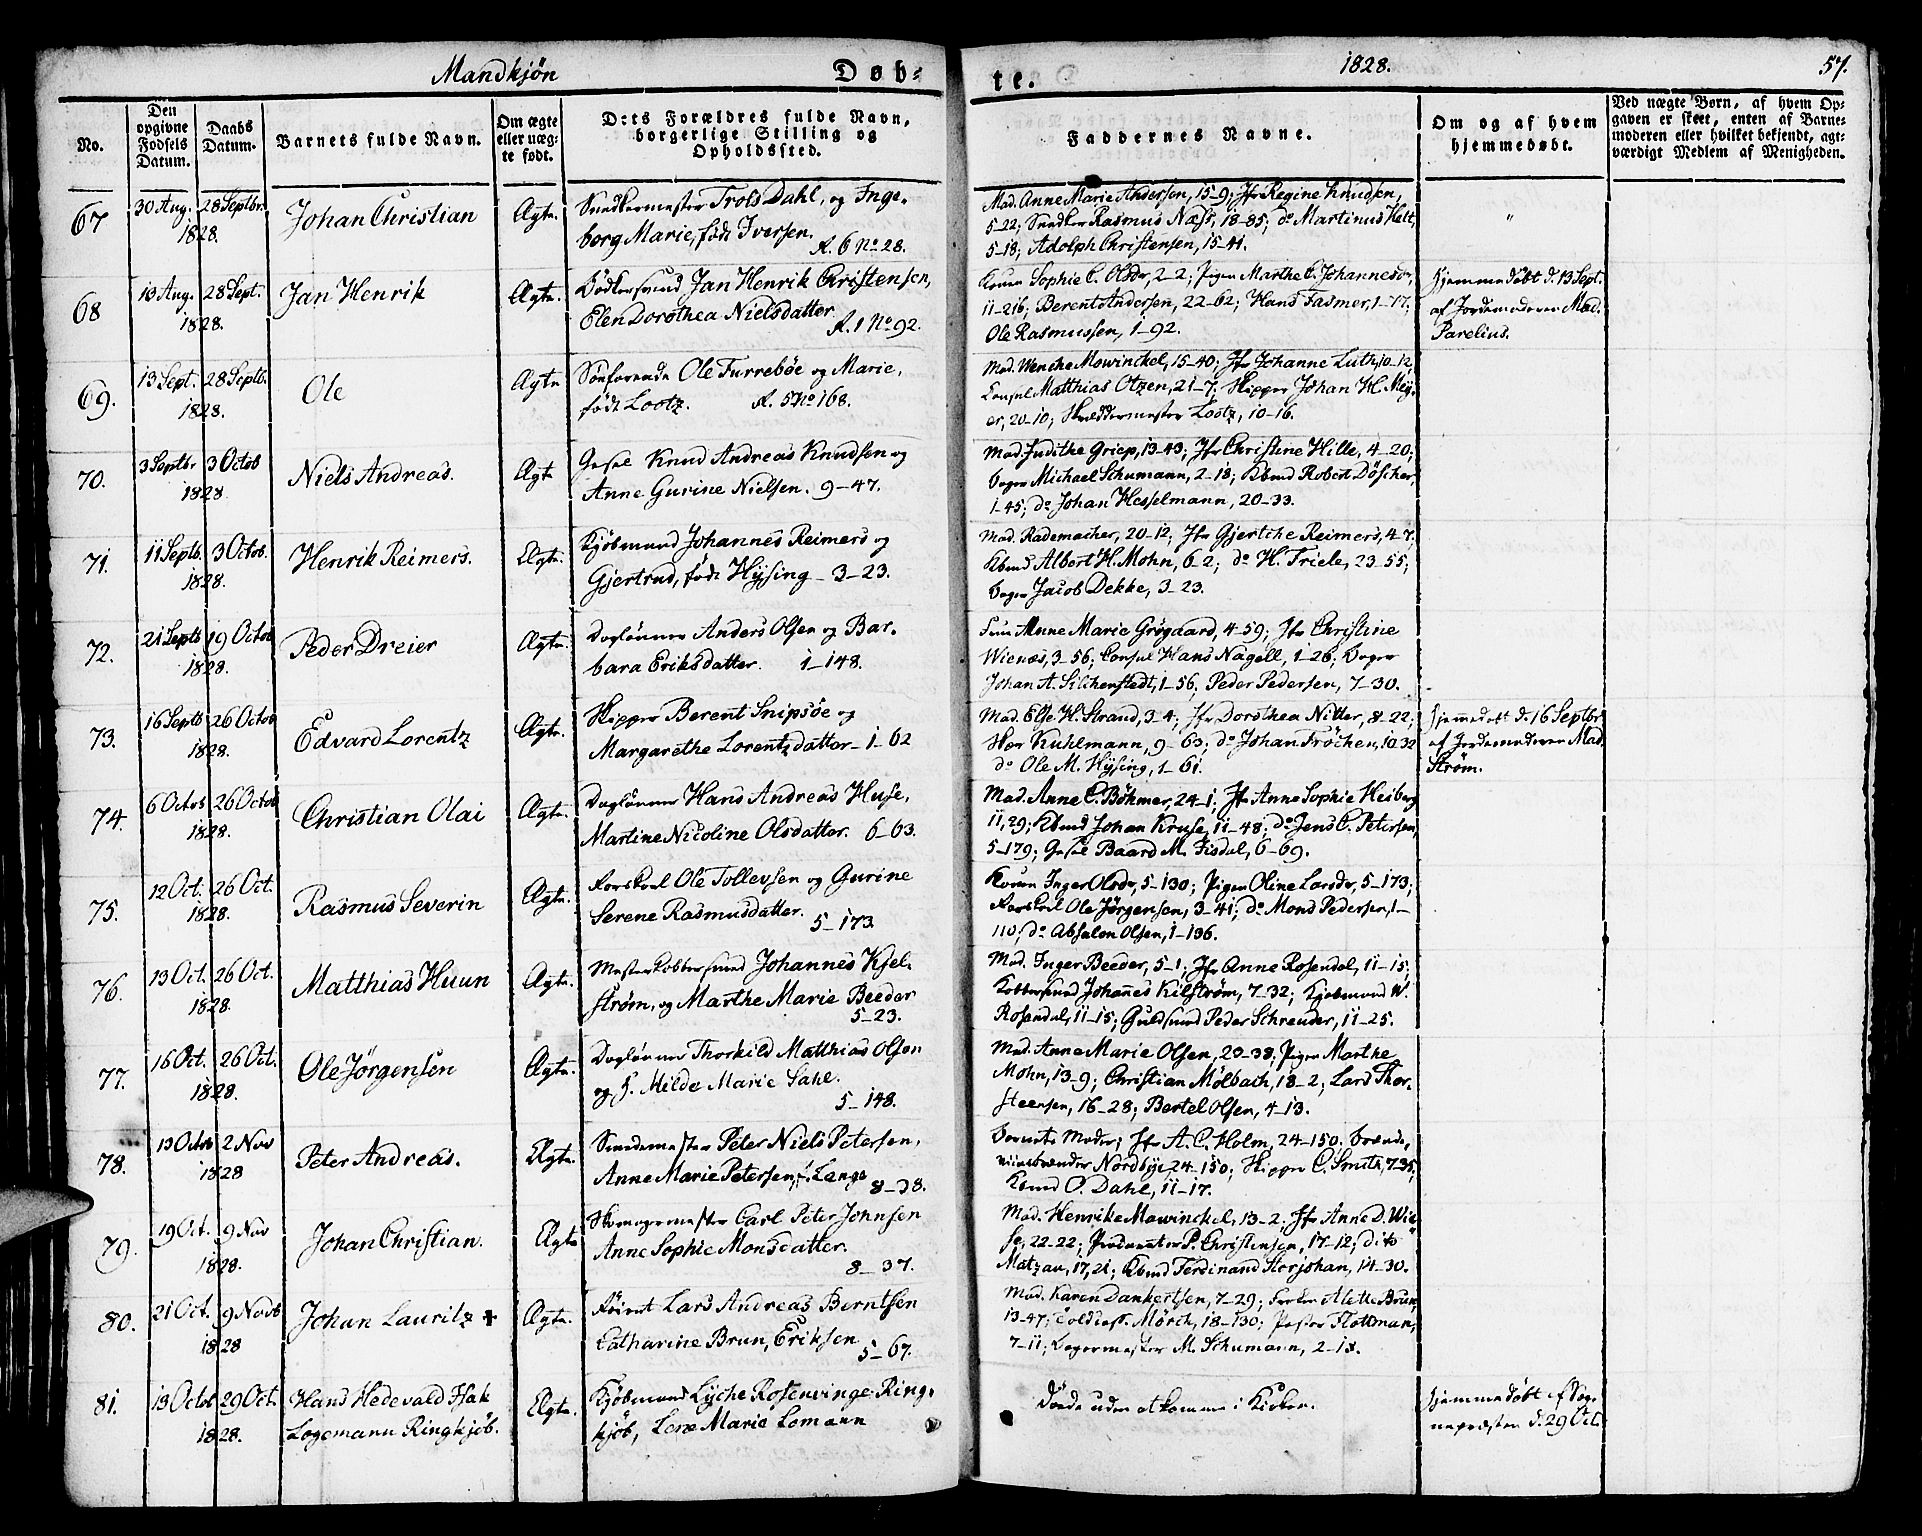 Mandkjøn
Døb-
te.
1828.
57.
No.
Den opgivne Fødsels Datum.
Daabs Datum.
Barnets fulde Navn.
Om ægte eller uæg-
te født.
Dets Forældres fulde Navn,
borgerlige Stilling og
Opholdssted.
Faddernes Navne.
Om og af hvem
hjemmedøbt.
Ved uægte Børn, af hvem Op-
gaven er skeet, enten af Barne-
moderen eller hvilket bekjendt, agt-
værdigt Medlem af Menigheden.
67
30 Aug. 28 Septbr.
1828.
Johan Christian
Ægte.
Snedkermester Trols Dahl, og Inge-
borg Marie, født Iversen.
R. 6 No 28.
Mad. Anne Marie Andersen, 15-9; Jfr Regine Knudsen,
5-22; Snedker Rasmus Næss, 18-85; do Martinus Helt,
5-18; Adolph Christensen, 15-41.
"
68
10 Aug. 28 Sept.
1828.
Jan Henrik
Ægte.
Bødkersvend Jan Henrik Christensen,
Elen Dorothea Nielsdatter
R. 1 No 92.
Konen Sophie C. Olsdr, 2-2; Pigen Marthe C. Johannesdr,
11-216; Berent Andersen, 22-62; Hans Fasmer, 1-77;
Ole Rasmussen, 1-92.
Hjemmedøbt d. 13 Sept.
af Jordemoderen Mad.
Parelius.
69.
13 Sept. 28 Septb.
1828.
Ole
Ægte
Søefarende Ole Furrebøe og Marie,
født Lootz.
R. 5 No 168.
Mad. Wenche Mowinckel, 15-40; Jfr Johanne Luth, 10-12,
Consul Matthias Otzen, 21-7; Skipper Johan H. Mey-
er, 20-10; Skreddermester Lootz, 10-16.
70.
3 Septbr 3 Octob
1828.
Niels Andreas.
Ægt
Gesel Knud Andreas Knudsen og
Anne Gurine Nielsen. 9-47.
Mad. Judithe Griep, 13-43; Jfr Christine Hille, 4-20;
Bager Michael Schumann, 2-18; Kbmd Robert Döscher,
1-45; do Johan Hesselmann, 20-33.
71.
11 Septb. 3 Octob.
1828.
Henrik Reimers.
Ægte.
Kjøbmand Johannes Reimers og
Gjertrud, født Hysing - 3-23.
Mad. Rademacher, 20-12; Jfr Gjertche Reimers, 4-7;
Kbmd Albert H. Mohn, 6-2; do H. Friele, 23-55;
Bager Jacob Dekke, 3-23.
72.
21 Septb 19 Octob
1828.
Peder Dreier
Ægte.
Daglønner Anders Olsen og Bar-
bara Eriksdatter. 1-148.
Anne Marie Grøgaard, 4-59; Jfr Christine
Wienæs, 3-56; Consul Hans Nagell, 1-26; Bager
Johan A. Silchenstedt, 1-56, Peder Pedersen, 7-30.
73.
16 Septb 26 Octob
1828.
Edvard Lorentz
Ægte.
Skipper Berent Snipsøe og
Margarethe Lorentzdatter - 1-62
Mad. Else H. Strand, 3-4; Jfr Dorothea Nitter, 8-22;
Herr Kuhlmann, 9-63; do Johan Fröchen, 10-32
do Ole M. Hysing, 1-61.
Hjemmedøbt d. 16 Septbr
af Jordemoderen Mad.
Strøm.
74.
6 Octob 26 Octob
1828.
Christian Olai
Ægte.
Daglønner Hans Andreas Huse,
Martine Nicoline Olsdatter. 6-63.
Mad. Anne C. Böhmer, 24-1; Jfr Anne Sophie Heiberg
11, 29; Kbmd Johan Kruse, 11-48; do Jens C. Petersen,
5-179; Gesel Baard M. Fisdal, 6-69.
75.
12 Oct. 26 Oct.
1828.
Rasmus Severin
Ægte.
Ole Tollevsen og Gurine
Serene Rasmusdatter.
5-173.
Konen Inger Olsdr, 5-130; Pigen Oline Larsdr, 5-173;
Ole Jørgensen, 3-41; do Mons Pedersen, 1-
110; do Absalon Olsen, 1-136.
76.
13 Oct. 26 Oct.
1828.
Matthias Huun
Ægte.
Mesterkobbersmed Johannes Kjel-
strøm, og Marthe Marie Beeder
5-23.
Mad. Inger Beeder, 5-1; Jfr Anne Rosendal, 11-15;
Kobbersmed Johannes Kilström, 7-32; Kjøbmand W.
Rosendal, 11-15; Guldsmed Peder Schreuder, 11-25.
77.
16 Oct. 26 Oct.
1828.
Ole Jörgensen
Ægte.
Daglønner Thorkild Matthias Olsen
og J. Milde Marie Sahl.
5-148.
Mad. Anne Marie Olsen, 20-38; Pigen Marthe
Mohn, 13-9; Christian Mølbach, 18-2; Lars Thor-
steensen, 16-28; Bertel Olsen, 4-13.
78.
13 Octob 2 Nov
1828
Peter Andreas.
Ægte.
Smedemester Peter Niels Petersen,
Anne Marie Petersen, f. Lange
8-38.
Barnets Moder; Jfr A. C. Holm, 24-150. Brænde-
viinsbrænder Nordbye, 24-150; Skipper C. Smith, 7-35;
Kbmd O. Dahl, 11-17.
79.
19 Oct. 9 Nov
1828.
Johan Christian.
Ægte
Skomagermester Carl Peter Johnsen
Anne Sophie Monsdatter.
8-37.
Mad. Henrike Mowinckel, 13-2; Jfr Anne D. Wie-
se, 22-22; Procurator P. Christensen, 17-12; dito
Matzau, 17, 21; Kbmd Ferdinand Storjohan, 14-30.
80.
21 Oct. 9 Novb
1828
Johan Lauritz +
Ægte.
Lars Andreas Berntsen
Catharine Brun, Eriksen
5-67.
Mad. Karen Dankertsen, 7-29; Alette Brun,
13-47; Mörch, 18-130; Flottman,
7-11; Bagermester M. Schumann, 2-18.
81.
13 Octob 29 Oct.
1828.
Hans Hedevald Isak
Logemann Ringkjöb.
Ægte.
Kjøbmand Lyche Rosenvinge Ring-
kjøb, Lene Marie Lomann
Døde uden at komme i Kirken.
Hjemmedøbt af Sog-
nepræsten d. 29 Oct.